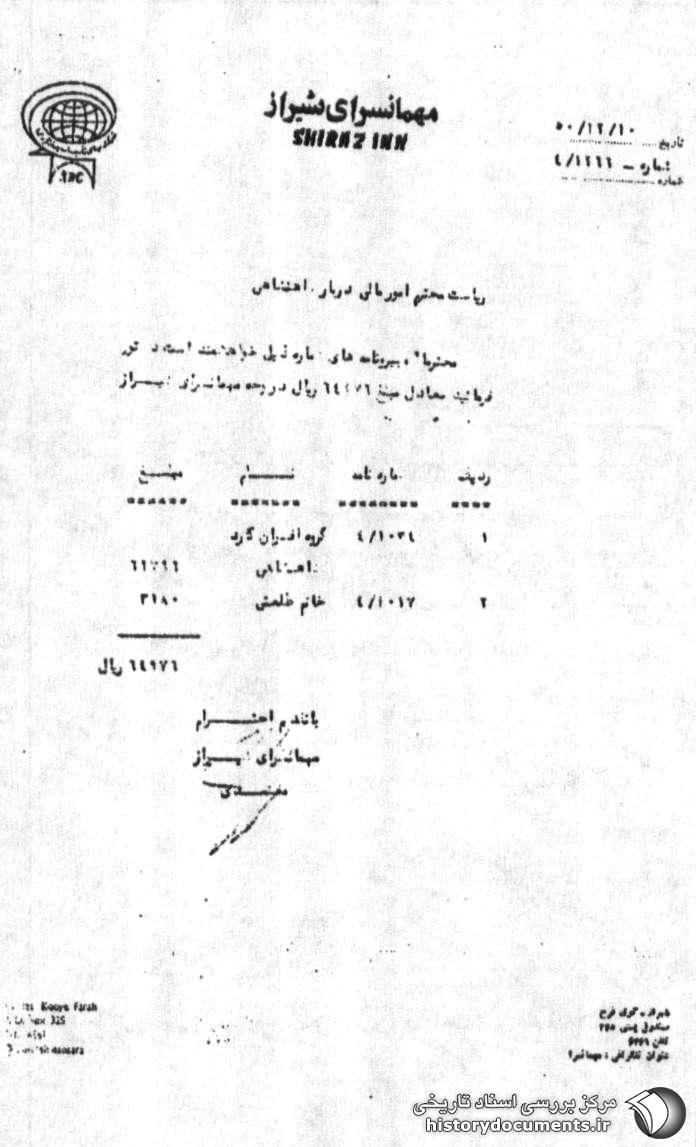 مهمانسرای شیراز
SHIRAZ INN
تاریخ ۵۰/۱۲/۱۰
شماره ۴/۱۲۶۶
ABC
ریاست محترم امور مالی دربار شاهنشاهی
محترما" پیرو نامه های شماره ذیل خواهشمند است دستور
فرمائید معادل مبلغ ۶۴۹۷۶ ریال در وجه مهمانسرای شیراز
ردیف شماره نامه نام مبلغ
۱ ۴/۱۰۳۴ گروه افسران گارد
شاهنشاهی ۶۱۷۹۶
۲ ۴/۱۰۱۷ خانم ۳۱۸۰
۶۴۹۷۶ ریال
با تقدیم احترام
مهمانسرای شیراز
Kooye Farah
Box 325
شیراز - کوی فرح
صندوق پستی
تلفن
عنوان تلگرافی : مهمانسرا
مرکز بررسی اسناد تاریخی
historydocuments.ir